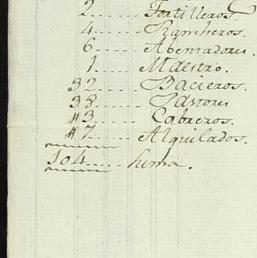 2..... Tortilleros.
4..... Rancheros.
6..... Abentadores.
1..... Maestro.
32..... Bacieros.
38..... Pastores
#3..... Cabreros.
#7..... Alquilados.
104..... suma.